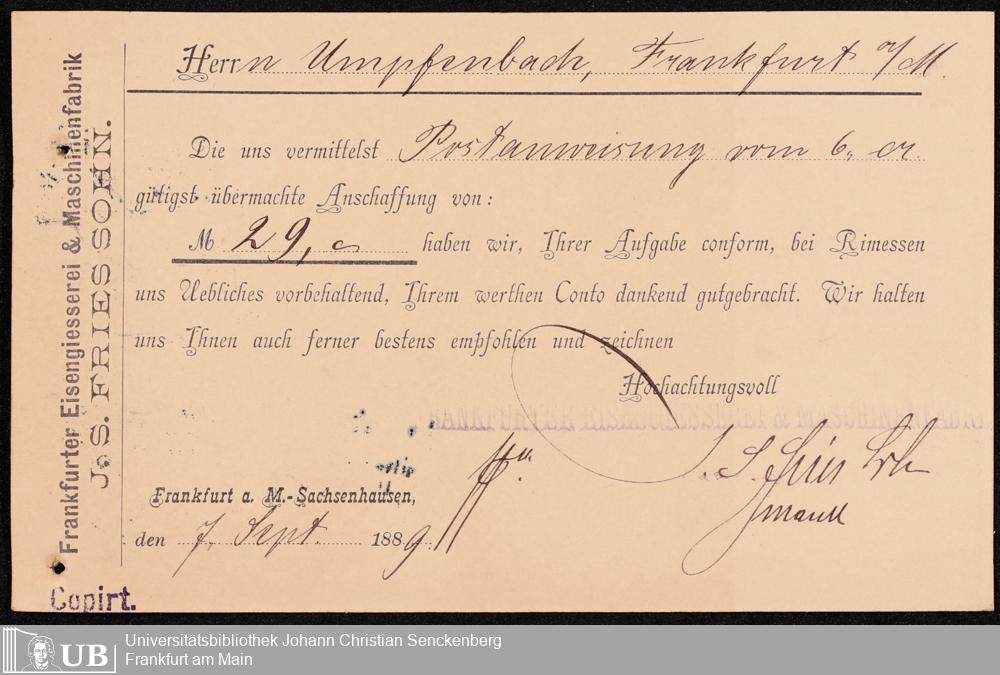 Frankfurter Eisengiesserei & Maschinenfabrik
J. S. FRIES SOHN.
Herrn Umpfenbach, Frankfurt a/M.
Die uns vermittelst Postanweisung vom 6. cr.
gütigst übermachte Anschaffung von:
M 29,– haben wir, Ihrer Aufgabe conform, bei Rimessen
uns Uebliches vorbehaltend, Ihrem werthen Conto dankend gutgebracht. Wir halten
uns Ihnen auch ferner bestens empfohlen und zeichnen
Hochachtungsvoll
FRANKFURTER EISENGIESSEREI & MASCHINENFABRIK
ppa. J. S. Fries Sohn
Frankfurt a. M.-Sachsenhausen,
den 7. Sept. 1889.
Copirt.
UB
Universitätsbibliothek Johann Christian Senckenberg
Frankfurt am Main